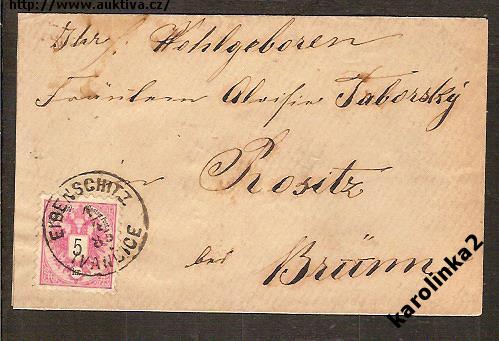 http://www.auktiva.cz/
Ihr Wohlgeboren
Fräulein Aloisie Taborský
in
Rositz
bei
Brünn
EIBENSCHITZ
IVANČICE
5
kr.
karolinka2